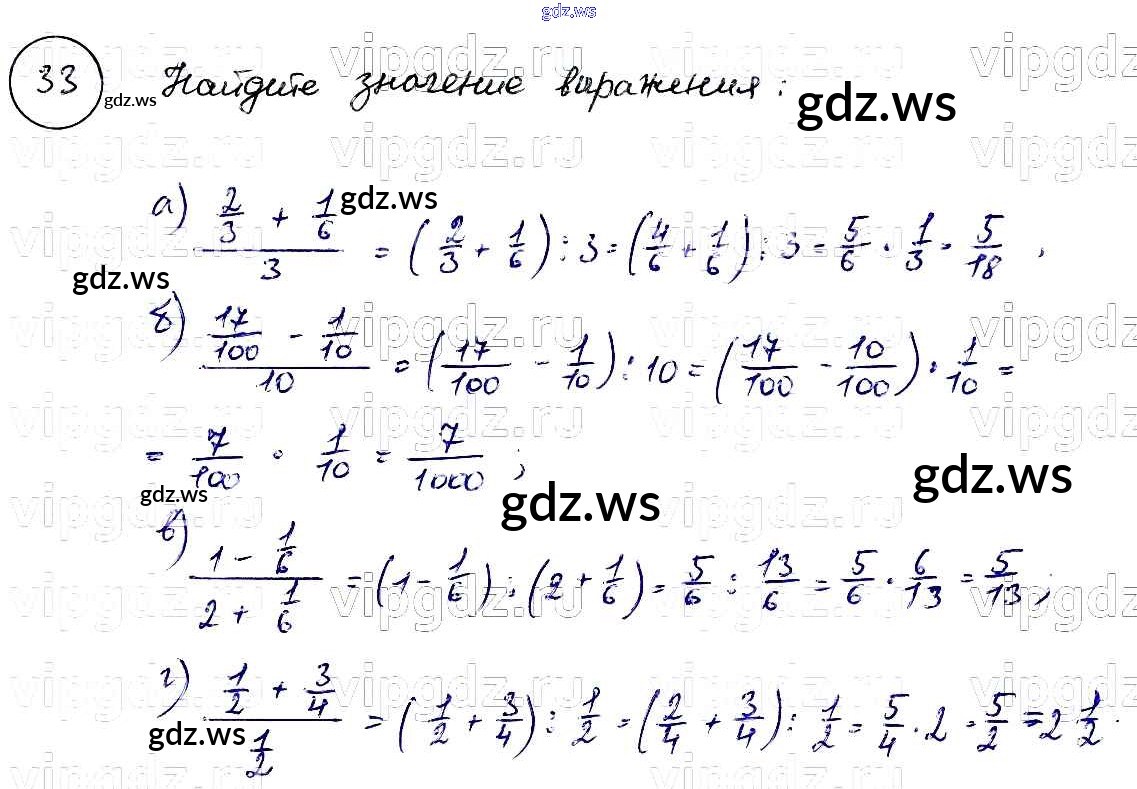 gdz.ws
33 Найдите значение выражения:
gdz.ws
gdz.ws
а) (2/3 + 1/6)/3 = (2/3 + 1/6) : 3 = (4/6 + 1/6) : 3 = 5/6 · 1/3 = 5/18 ,
gdz.ws
gdz.ws
б) (17/100 - 1/10)/10 = (17/100 - 1/10) : 10 = (17/100 - 10/100) · 1/10 =
= 7/100 · 1/10 = 7/1000 ;
gdz.ws
gdz.ws
gdz.ws
в) (1 - 1/6)/(2 + 1/6) = (1 - 1/6) : (2 + 1/6) = 5/6 : 13/6 = 5/6 · 6/13 = 5/13 ;
г) (1/2 + 3/4)/(1/2) = (1/2 + 3/4) : 1/2 = (2/4 + 3/4) : 1/2 = 5/4 · 2 = 5/2 = 2 1/2 .
gdz.ws
vipgdz.ru